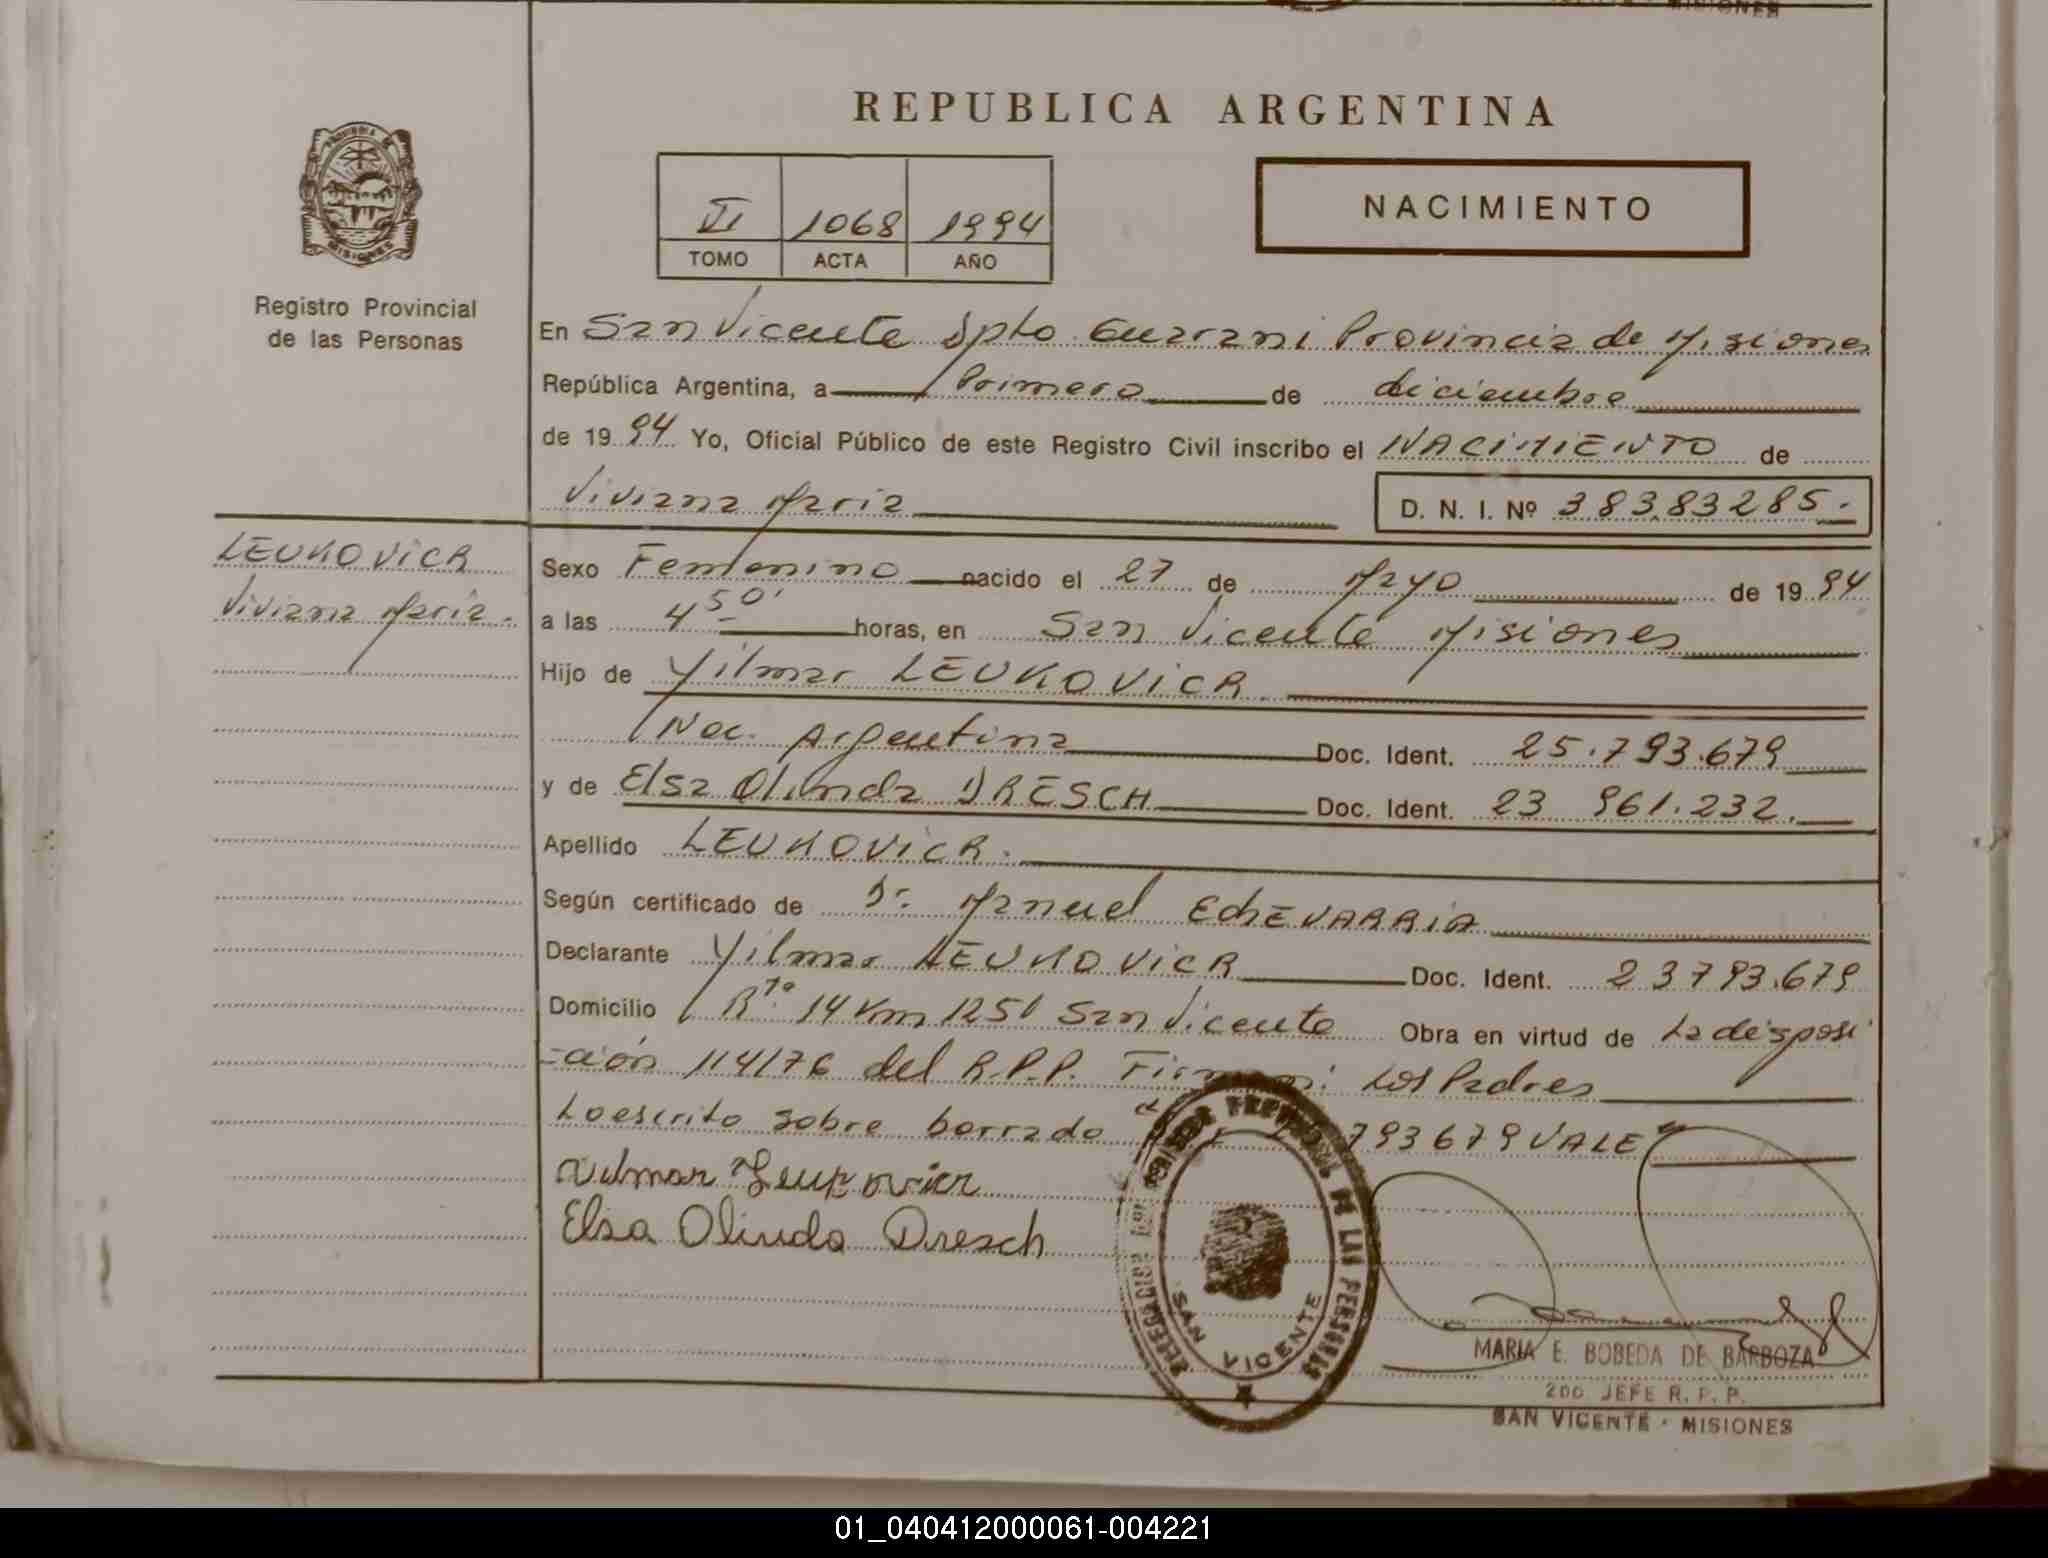 REPUBLICA ARGENTINA
VI 1068 1994
TOMO ACTA AÑO
NACIMIENTO
PROVINCIA DE
MISIONES
Registro Provincial
de las Personas
En San Vicente Dpto Guarani Provincia de Misiones
República Argentina, a Primero de diciembre
de 1994 Yo, Oficial Público de este Registro Civil inscribo el NACIMIENTO de
Viviana Maria D. N. I. Nº 38383285.-
LEUKOVICR
Viviana Maria.
Sexo Femenino nacido el 27 de Mayo de 1994
a las 4 50' horas, en San Vicente Misiones
Hijo de Vilmar LEUKOVICR
Nac. Argentina Doc. Ident. 25.793.679
y de Elsa Olinda DRESCH Doc. Ident. 23 961.232.
Apellido LEUKOVICR.
Según certificado de Dr. Manuel EchEVARRIA
Declarante Vilmar LEUKOVICR Doc. Ident. 23793.679
Domicilio Rta 14 Km 1251 San Vicente Obra en virtud de La disposi
-ción 114/76 del R.P.P. Firman: Los Padres
Lo escrito sobre borrado 793679 VALE"
Vilmar Leukovicr
Elsa Olinda Dresch
DELEGACION DEL REGISTRO PROVINCIAL DE LAS PERSONAS
SAN VICENTE
MARIA E. BOBEDA DE BARBOZA
2do JEFE R. P. P.
SAN VICENTE - MISIONES
01_040412000061-004221